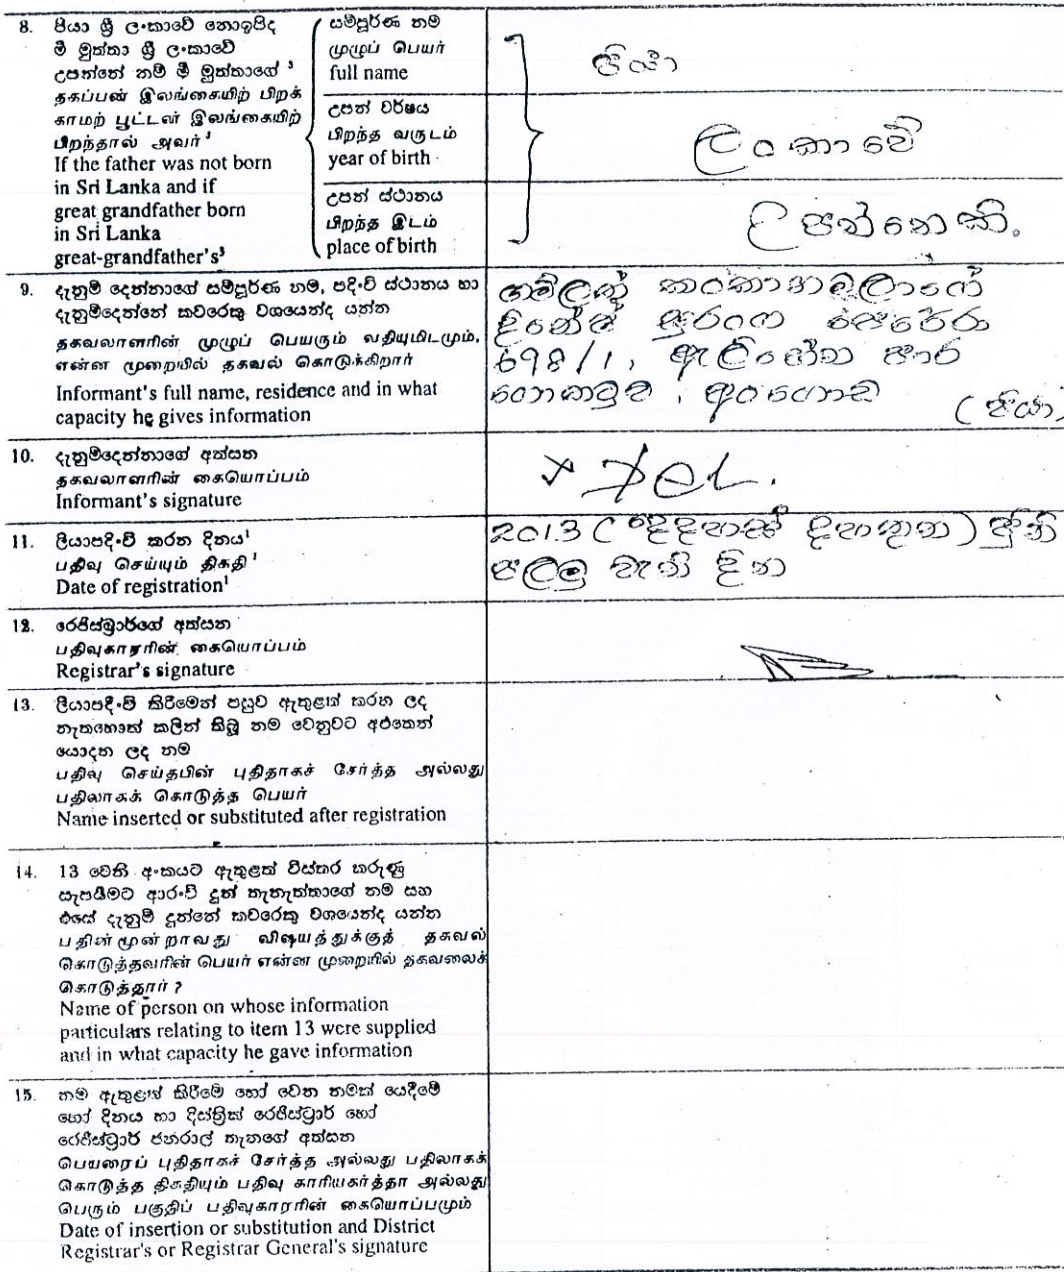 8. පියා ශ්‍රී ලංකාවේ නොඉපිද
මී මුත්තා ශ්‍රී ලංකාවේ
උපන්නේ නම් මී මුත්තාගේ ³
தகப்பன் இலங்கையிற் பிறக்
காமற் பூட்டன் இலங்கையிற்
பிறந்தால் அவர் ³
If the father was not born
in Sri Lanka and if
great grandfather born
in Sri Lanka
great-grandfather's³
සම්පූර්ණ නම
முழுப் பெயர்
full name
පියා
උපන් වර්ෂය
பிறந்த வருடம்
year of birth
ලංකාවේ
උපන් ස්ථානය
பிறந்த இடம்
place of birth
උපන්නෙකි.
9. දැනුම් දෙන්නාගේ සම්පූර්ණ නම, පදිංචි ස්ථානය හා
දැනුම්දෙන්නේ කවරෙකු වශයෙන්ද යන්න
தகவலாளரின் முழுப் பெயரும் வதியுமிடமும்,
என்ன முறையில் தகவல் கொடுக்கிறார்
Informant's full name, residence and in what
capacity he gives information
ගම්ලත් කංකානම්ලාගේ
දිනේෂ් සුරංග පෙරේරා
698/1, ඇලිහෝන පාර
ගොනටුව, අංගොඩ (පියා)
10. දැනුම්දෙන්නාගේ අත්සන
தகவலாளரின் கையொப்பம்
Informant's signature
11. ලියාපදිංචි කරන දිනය¹
பதிவு செய்யும் திகதி ¹
Date of registration¹
2013 (දෙදහස් දහතුන) ජුනි
පලමු වැනි දින
12. රෙජිස්ට්‍රාර්ගේ අත්සන
பதிவுகாரரின் கையொப்பம்
Registrar's signature
13. ලියාපදිංචි කිරීමෙන් පසුව ඇතුළත් කරන ලද
නැතහොත් කලින් තිබූ නම වෙනුවට අළුතෙන්
යොදන ලද නම
பதிவு செய்தபின் புதிதாகச் சேர்த்த அல்லது
பதிலாகக் கொடுத்த பெயர்
Name inserted or substituted after registration
14. 13 වෙනි අංකයට ඇතුළත් විස්තර කරුණු
සැපයීමට ආරංචි දුන් තැනැත්තාගේ නම සහ
එසේ දැනුම් දුන්නේ කවරෙකු වශයෙන්ද යන්න
பதின்மூன்றாவது விஷயத்துக்குத் தகவல்
கொடுத்தவரின் பெயர் என்ன முறையில் தகவலைக்
கொடுத்தார் ?
Name of person on whose information
particulars relating to item 13 were supplied
and in what capacity he gave information
15. නම ඇතුළත් කිරීමේ හෝ වෙන නමක් යෙදීමේ
හෝ දිනය හා දිස්ත්‍රික් රෙජිස්ට්‍රාර් හෝ
රෙජිස්ට්‍රාර් ජනරාල් තැනගේ අත්සන
பெயரைப் புதிதாகச் சேர்த்த அல்லது பதிலாகக்
கொடுத்த திகதியும் பதிவு காரியகர்த்தா அல்லது
பெரும் பகுதிப் பதிவுகாரரின் கையொப்பமும்
Date of insertion or substitution and District
Registrar's or Registrar General's signature